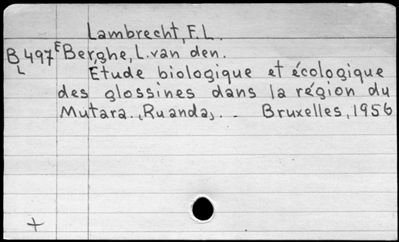 Lambrecht, F.L.
B497E Berghe, L. van den.
L
Étude biologique et écologique
des glossines dans la région du
Mutara, (Ruanda). - Bruxelles, 1956
+